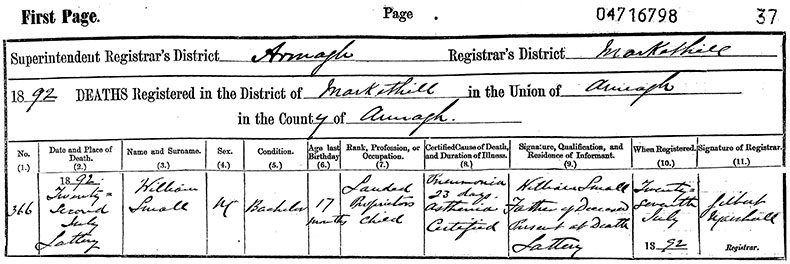 First Page. Page 04716798 37
Superintendent Registrar's District Armagh Registrar's District Markethill
1892 DEATHS Registered in the District of Markethill in the Union of Armagh
in the County of Armagh.
No. (1.) Date and Place of Death. (2.) Name and Surname. (3.) Sex. (4.) Condition. (5.) Age last Birthday (6.) Rank, Profession, or Occupation. (7.) Certified Cause of Death, and Duration of Illness. (8.) Signature, Qualification, and Residence of Informant. (9.) When Registered. (10.) Signature of Registrar. (11.)
366
1892.
Twenty=
Second
July
Lattery
William
Small
M
Bachelor
17
months
Landed
Proprietors
Child
Pneumonia
23 days
Asthenia
Certified
William Small
Father of Deceased
Present at Death
Lattery
Twenty=
Seventh
July
1892
Gilbert
Marshall
Registrar.